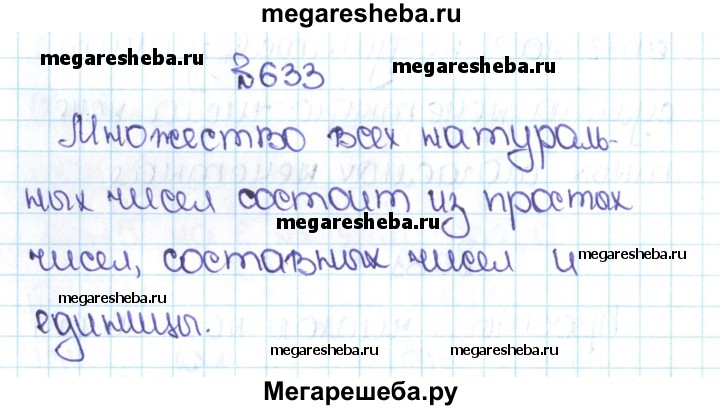 megaresheba.ru
megaresheba.ru №633 megaresheba.ru
Множество всех натураль-
ных чисел состоит из простых
megaresheba.ru
чисел, составных чисел и megaresheba.ru
megaresheba.ru
единицы.
megaresheba.ru megaresheba.ru
Мегарешеба.ру